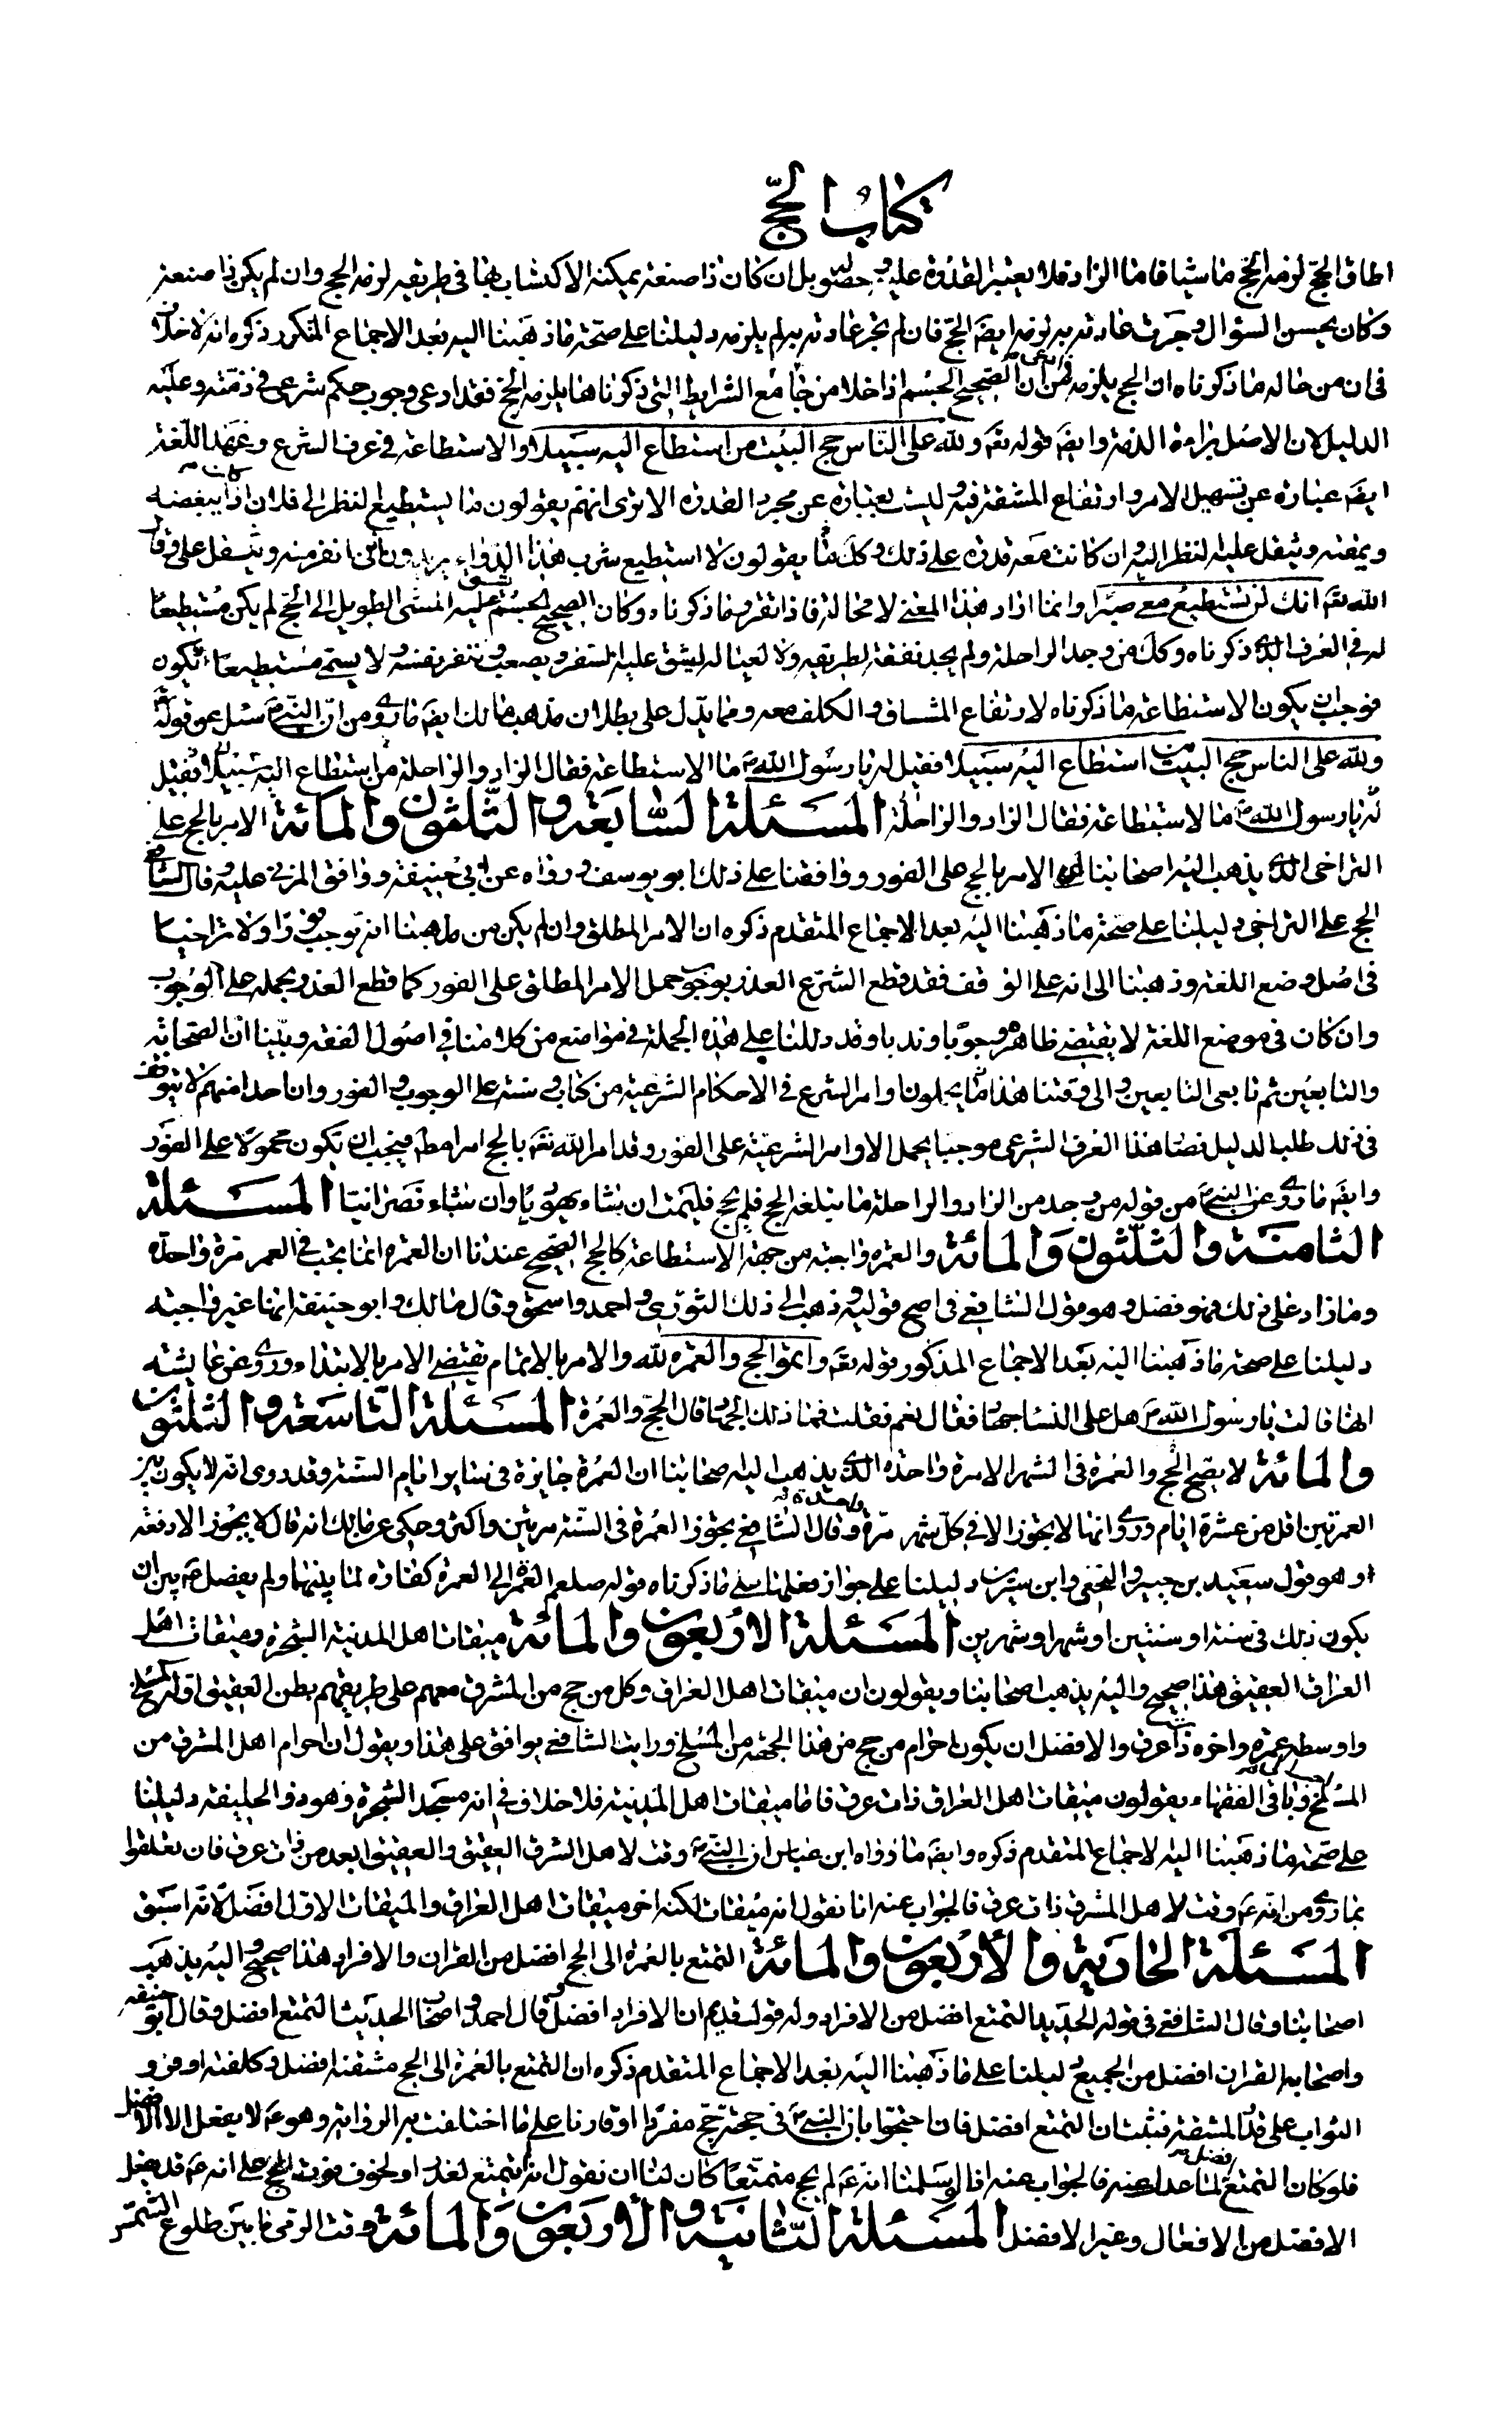 كتاب الحج
اطاق الحج لزمه الحج ماشيا فاما الزاد فلا يعتبر القدرة عليه وحصوله بل ان كان ذا صنعة يمكنه الاكتساب بها فى طريقه لزمه الحج وان لم يكن ذا صنعة
وكان يحسن السؤال وجرت عادته به لزمه ايضَ الحج فان لم تجر عادته به لم يلزمه دليلنا على صحة ما ذهبنا اليه بعد الاجماع المتكرر ذكره انه لا خلاف
فى ان من حاله ما ذكرناه ان الحج يلزمه فمن ادعى ان الصحيح الجسم اذا خلا من جامع الشرايط التى ذكرناها يلزمه الحج فقد ادعى وجوب حكم شرعى فى ذمته وعليه
الدليل لان الاصل براءة الذمة وايضَ قوله تعَ ولله على الناس حج البيت من استطاع اليه سبيلا والاستطاعة فى عرف الشرع وعهد اللغة
ايضَ عبارة عن تسهيل الامر وارتفاع المشقة فيه وليست بعبارة عن مجرد القدرة الا ترى انهم يقولون ما يستطيع النظر الى فلان اذا كان يبغضه
ويمقته ويثقل عليه النظر اليه وان كانت معه قدرة على ذلك وكذلك يقولون لا استطيع شرب هذا الدواء يريدون اننى انفر منه ويثقل على وقال
الله تعَ انك لن تستطيع معى صبرا وانما اراد هذا المعنى لا محالة فاذا تقرر ما ذكرناه وكان الصحيح الجسم يشق عليه المشى الطويل الى الحج لم يكن مستطيعا
له فى العرف الذى ذكرناه وكذلك من وجد الراحلة ولم يجد نفقة لطريقه ولا لعياله يشق عليه السفر ويصعب وتنفر نفسه ولا يسمى مستطيعا
فوجب ان يكون الاستطاعة ما ذكرناه لارتفاع المشاق والكلف معه ومما يدل على بطلان مذهب مالك ايضَ ما روى من ان النبى سئل عن قوله تع
ولله على الناس حج البيت من استطاع اليه سبيلا فقيل له يا رسول الله ما الاستطاعة فقال الزاد والراحلة من استطاع اليه سبيلا فقيل
له يا رسول الله ما الاستطاعة فقال الزاد والراحلة المسئلة السابعة والثلثون والمائة الامر بالحج على
التراخى الذى يذهب اليه اصحابنا ان الامر بالحج على الفور ووافقنا على ذلك ابو يوسف ورواه عن ابى حنيفة ووافق المزنى عليه وقال الشافعى
الحج على التراخى دليلنا على صحة ما ذهبنا اليه بعد الاجماع المتقدم ذكره ان الامر المطلق وان لم يكن من مذهبنا انه يوجب فورا ولا تراخيا
فى اصل وضع اللغة وذهبنا الى انه على الوقف فقد قطع الشرع العذر بوجوب حمل الامر المطلق على الفور كما قطع العذر بحمله على الوجوب
وان كان فى موضع اللغة لا يقتضى ظاهره وجوبا وندبا وقد دللنا على هذه الجملة فى مواضع من كلامنا فى اصول الفقه وبينا ان الصحابة
والتابعين ثم تابعى التابعين والى وقتنا هذا ما يحملون اوامر الشرع فى الاحكام الشرعية من كتاب وسنة على الوجوب والفور وان احدا منهم لا يتوقف
فى ذلك طلبا لدليل فصار هذا العرف الشرعى موجبا بحمل الاوامر الشرعية على الفور وقد امر الله تعَ بالحج امرا مطَ فيجب ان يكون محمولا على الفور
وايضَ ما روى عن النبى من قوله من وجد من الزاد والراحلة ما يبلغه الحج فلم يحج فليمت ان شاء يهوديا وان شاء نصرانيا المسئلة
الثامنة والثلثون والمائة والعمرة واجبة من جهة الاستطاعة كالحج الصحيح عندنا ان العمرة انما يجب فى العمر مرة واحدة
وما زاد على ذلك فهو فضل وهو قول الشافعى فى اصح قوليه وذهب الى ذلك الثورى واحمد واسحق وقال مالك وابو حنيفة انها غير واجبة
دليلنا على صحة ما ذهبنا اليه بعد الاجماع المذكور قوله تعَ واتموا الحج والعمرة لله والامر بالاتمام يقتضى الامر بالابتداء وروى عن عايشة
انها قالت يا رسول الله هل على النساء جهاد فقال نعم فقلت فما ذلك الجهاد قال الحج والعمرة المسئلة التاسعة والثلثون
والمائة لا يصح الحج والعمرة فى الشهر الا مرة واحدة الذى يذهب اليه اصحابنا ان العمرة جايزة فى ساير ايام السنة وقد روى انه لا يكون بين
العمرتين اقل من عشرة ايام وروى انها لا يجوز الا فى كل شهر مرة واحدة وقال الشافعى يجوز العمرة فى السنة مرتين واكثر وحكى عن مالك انه قال لا يجوز الا دفعة
وهو قول سعيد بن جبير والنخعى وابن سيرين دليلنا على جواز فعلها على ما ذكرناه قوله صلعم العمرة الى العمرة كفارة لما بينهما ولم يفصل عَ بين ان
يكون ذلك فى سنة او سنتين او شهر او شهرين المسئلة الاربعون والمائة ميقات اهل المدينة الشجرة وميقات اهل
العراق العقيق هذا صحيح واليه يذهب اصحابنا ويقولون ان ميقات اهل العراق وكل من حج من المشرق معهم على طريقهم بطن العقيق اوله المسلخ
واوسطه غمرة واخره ذات عرق والافضل ان يكون احرام من حج من هذا الجهة من المسلخ ورايت الشافعى يوافق على هذا ويقول ان احرام اهل المشرق من
المسلخ وباقى الفقهاء يقولون ميقات اهل العراق ذات عرق فاما ميقات اهل المدينة فلا خلاف فى انه مسجد الشجرة وهو ذو الحليفة دليلنا
على صحة ما ذهبنا اليه الاجماع المتقدم ذكره وايضَ ما رواه ابن عباس ان النبى وقت لاهل الشرق العقيق والعقيق ابعد من ذات عرق فان تعلقوا
بما روى من انه عَ وقت لاهل المشرق ذات عرق فالجواب عنه انا نقول انه ميقات لكنه اخر ميقات اهل العراق والميقات الاول افضل لانه اسبق
المسئلة الحادية والاربعون والمائة التمتع بالعمرة الى الحج افضل من القران والافراد هذا صحيح واليه يذهب
اصحابنا وقال الشافعى فى قوله الجديد التمتع افضل من الافراد وله قول قديم ان الافراد افضل وقال احمد واصحاب الحديث التمتع افضل وقال ابو حنيفة
واصحابه القران افضل من الجميع دليلنا على ما ذهبنا اليه بعد الاجماع المتقدم ذكره ان التمتع بالعمرة الى الحج مشقته افضل وكلفته اوفر و
الثواب على قدر المشقة فثبت ان التمتع افضل فان احتجوا بان النبى فى حجته حج مفردا او قارنا على ما اختلفت به الرواية وهو عَ لا يفعل الا الافضل
فلو كان التمتع افضل لما عدل عنه فالجواب عنه انا لو سلمنا انه عَ لم يحج متمتعا كان لنا ان نقول انه لم يتمتع لعذر او لخوف فوت الحج على انه عَ قد يفعل
الافضل من الافعال وغير الافضل المسئلة الثانية والاربعون والمائة وقت الرمى ما بين طلوع الشمس